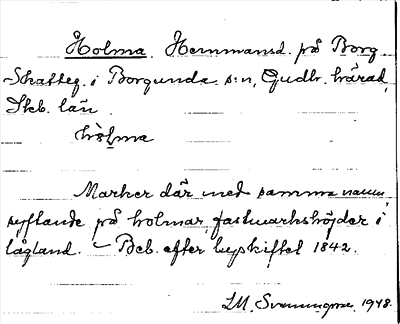 Holma. Hemmansd. på Borg
Skatteg. i Borgunda s:n, Gudh. härad,
Skb. län
hòlma
Marker där med samma namn
syftande på holmar, fastmarkshöjder i
lågland. – Beb. efter byskiftet 1842.
I.M. Svenungsson. 1948.